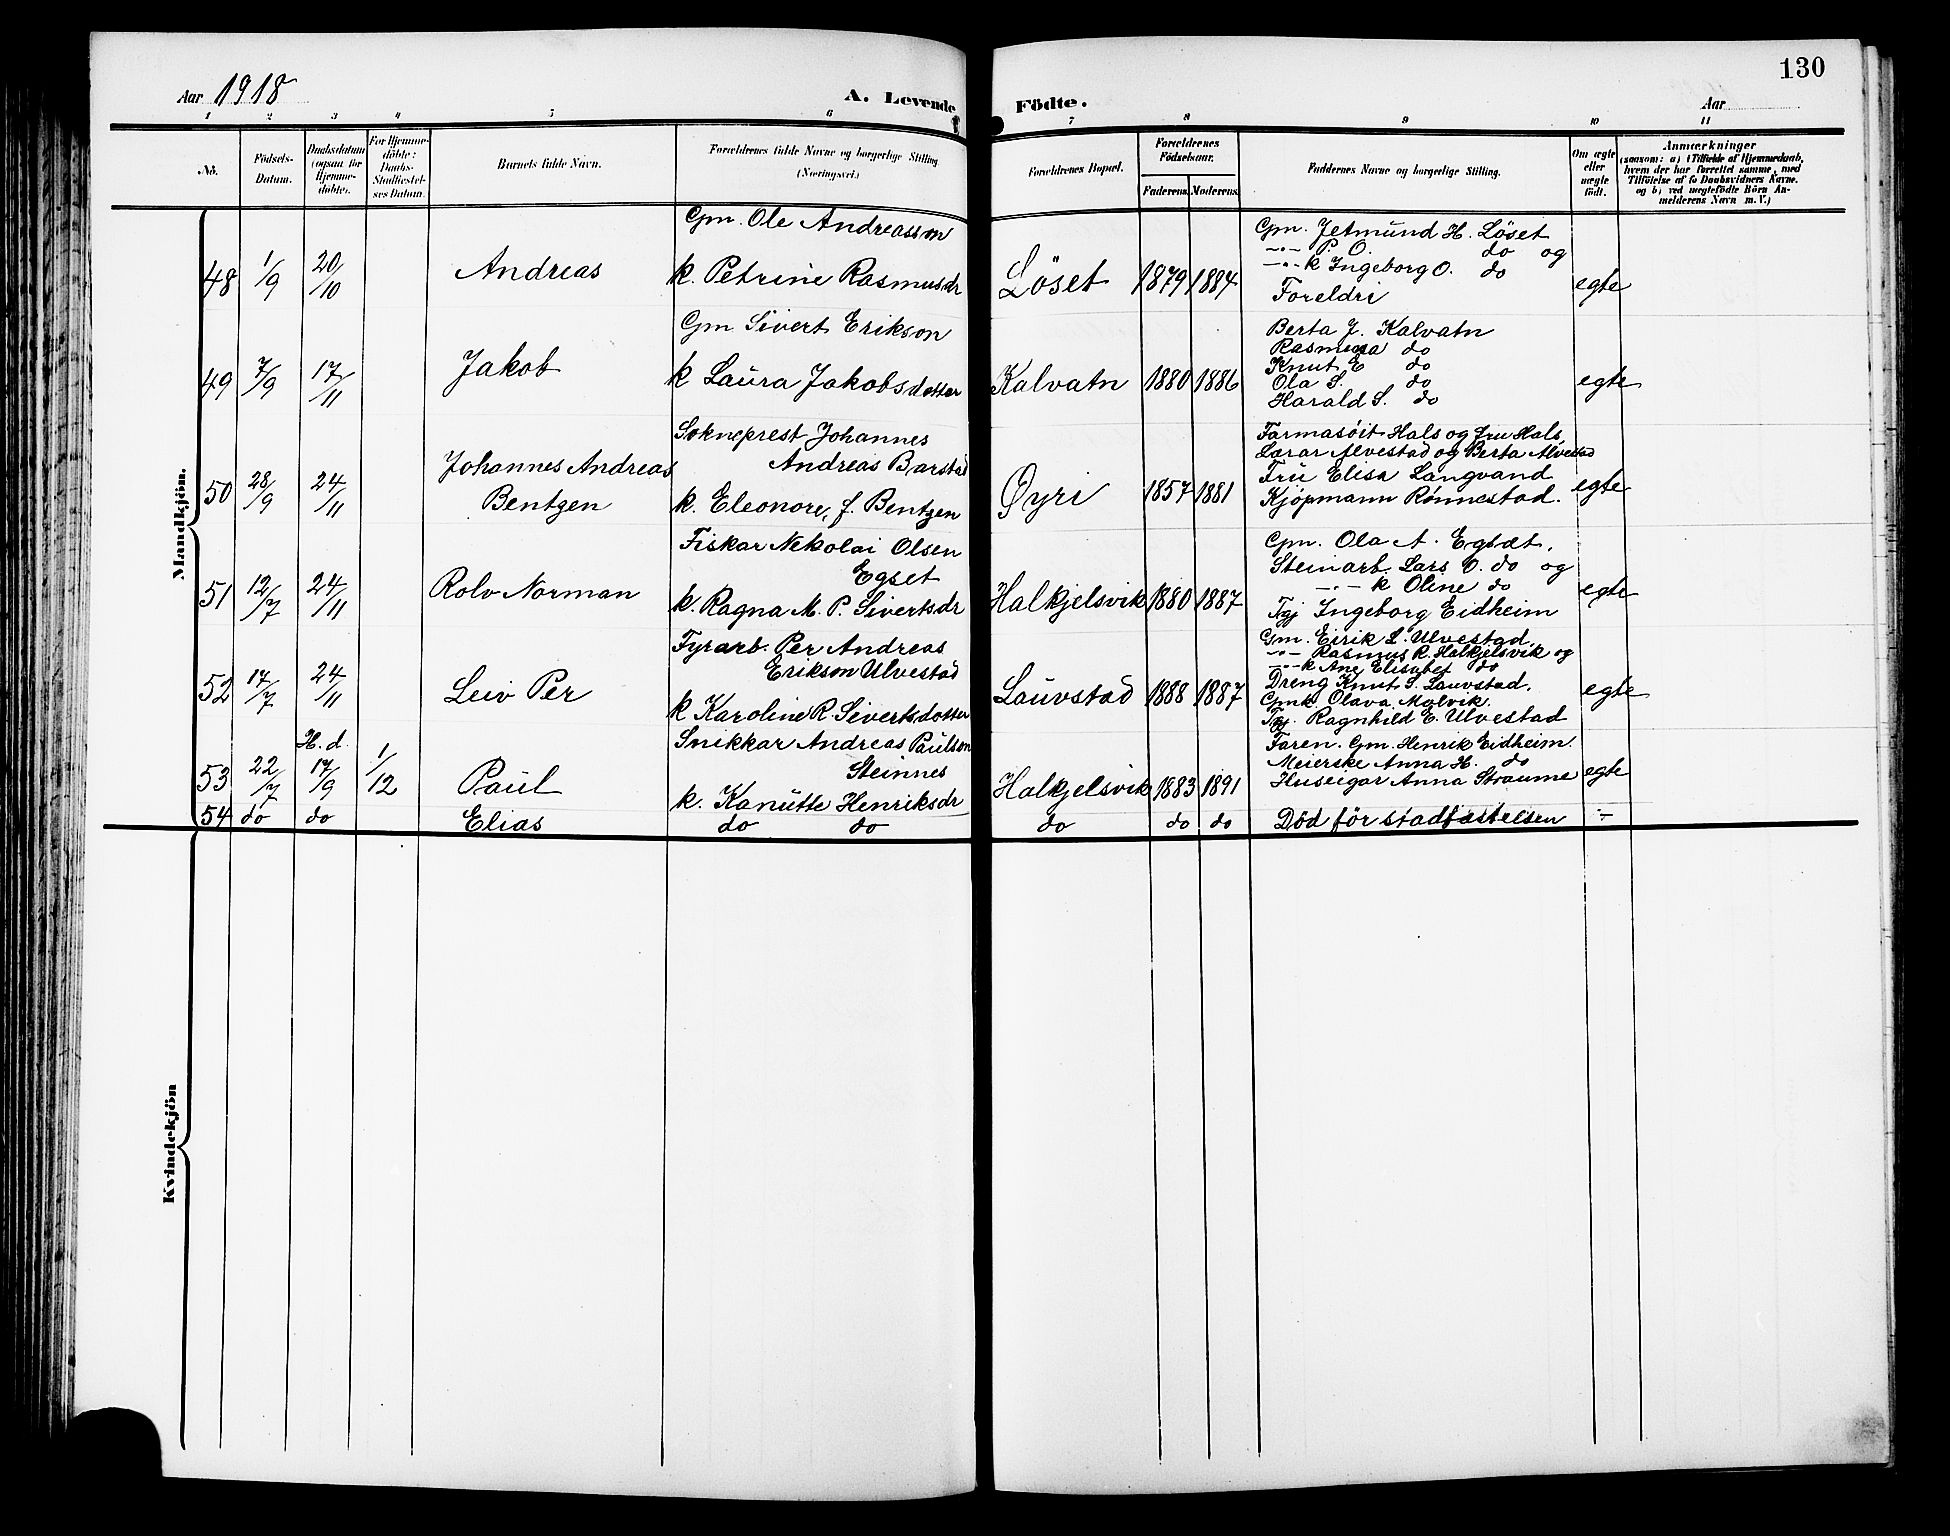 130
Aar 1918
A. Levende Födte.
Aar
1 2 3 4 5 6 7 8 9 10 11
No.
Födsels-Datum.
Daabsdatum (ogsaa for Hjemme-döbte).
For Hjemme-döbte: Daabs-Stadfæstel-ses Datum.
Barnets fulde Navn.
Forældrenes fulde Navne og borgerlige Stilling (Næringsvei.)
Forældrenes Bopæl.
Forældrenes Födselsaar.
Faderens. Moderens.
Faddernes Navne og borgerlige Stilling.
Om ægte eller uægte födt.
Anmærkninger
(saasom: a) i Tilfælde af Hjemmedaab,
hvem der har forrettet samme, med
Tilföielse af to Daabsvidners Navne.
og b) ved uægtefödte Börn An-
melderens Navn m. V.)
Mandkjön.
48 1/9 20/10 Andreas
Gm. Ole Andreasson
k. Petrine Rasmusdr
Löset 1879 1884
Gm. Jetmund H. Löset
-"- P. O. do og
-"- k Ingeborg O. do
Foreldri
egte
49 7/9 17/11 Jakob
Gm Sivert Erikson
k Laura Jakobsdotter
Kalvatn 1880 1886
Berta J. Kalvatn
Rasmina do
Knut E do
Ola S. do
Harald S. do
egte
50 28/9 24/11 Johannes Andreas
Bentzen
Sokneprest Johannes
Andreas Barstad
k. Eleonore, f. Bentzen
Øyri 1857 1881
Farmasöit Hals og fru Hals,
Lærar Alvestad og Berta Alvestad
Fru Elisa Langvand
Kjöpmann Rönnestad.
egte
51 12/7 24/11 Rolv Norman
Fiskar Nekolai Olsen
Egset
k. Ragna M. P. Sivertsdr
Halkjelsvik 1880 1887
Gm. Ola A. Egsæt,
Steinarb. Lars O. do og
-"- k Oline do
Tgj Ingeborg Eidheim
egte
52 17/7 24/11 Leiv Per
Fyrarb. Per Andreas
Erikson Ulvestad
k Karoline R. Sivertsdotter
Lauvstad 1888 1887
Gm. Eirik L. Ulvestad
-"- Rasmus R. Halkjelsvik og
-"- k Ane Elisabet do
Dreng Knut S. Lauvstad.
Gmk. Olava Molvik.
Tgj. Ragnhild E. Ulvestad
egte
53 22/7 H. d. 17/9 1/12 Paul
Snikkar Andreas Paulson
Steinnes
k. Kanutte Henriksdr
Halkjelsvik 1883 1891
Faren. Gm. Henrik Eidheim.
Meierske Anna H. do
Huseigar Anna Straume
egte
54 do do Elias do do do do do Död för stadfestelsen -"-
Kvindekjön